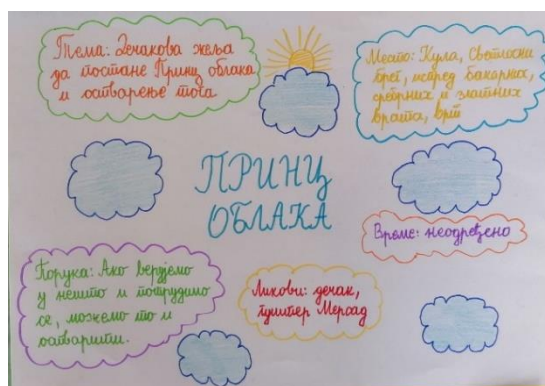 Тема: Дечакова жеља
да постане Принц облака
и остварење тога
Место: Кула, Светлосни
брег, испред бакарних,
сребрних и златних
врата, врт
ПРИНЦ
ОБЛАКА
Време: неодређено
Порука: Ако верујемо
у нешто и потрудимо
се, можемо то и
остварити.
Ликови: дечак,
гуштер Мерсад